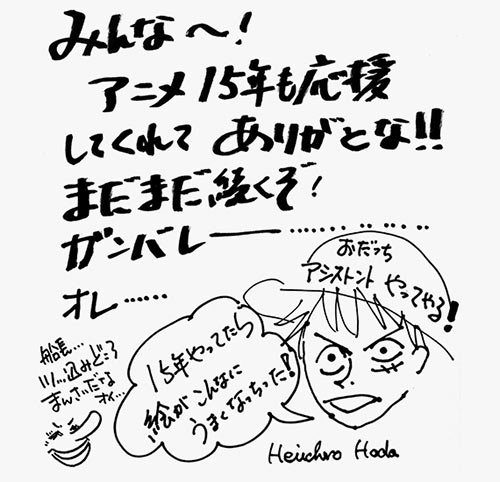 みんな〜!
アニメ15年も応援
してくれて ありがとな!!
まだまだ続くぞ!
ガンバレー――……‥‥‥
オレ……
おだっち
アシストント やってやる!
15年やってたら
絵がこんなに
うまくなっちった!
船長…
ツッ込みどころ
まんさいだなオイ…
Heiichiro Hoda